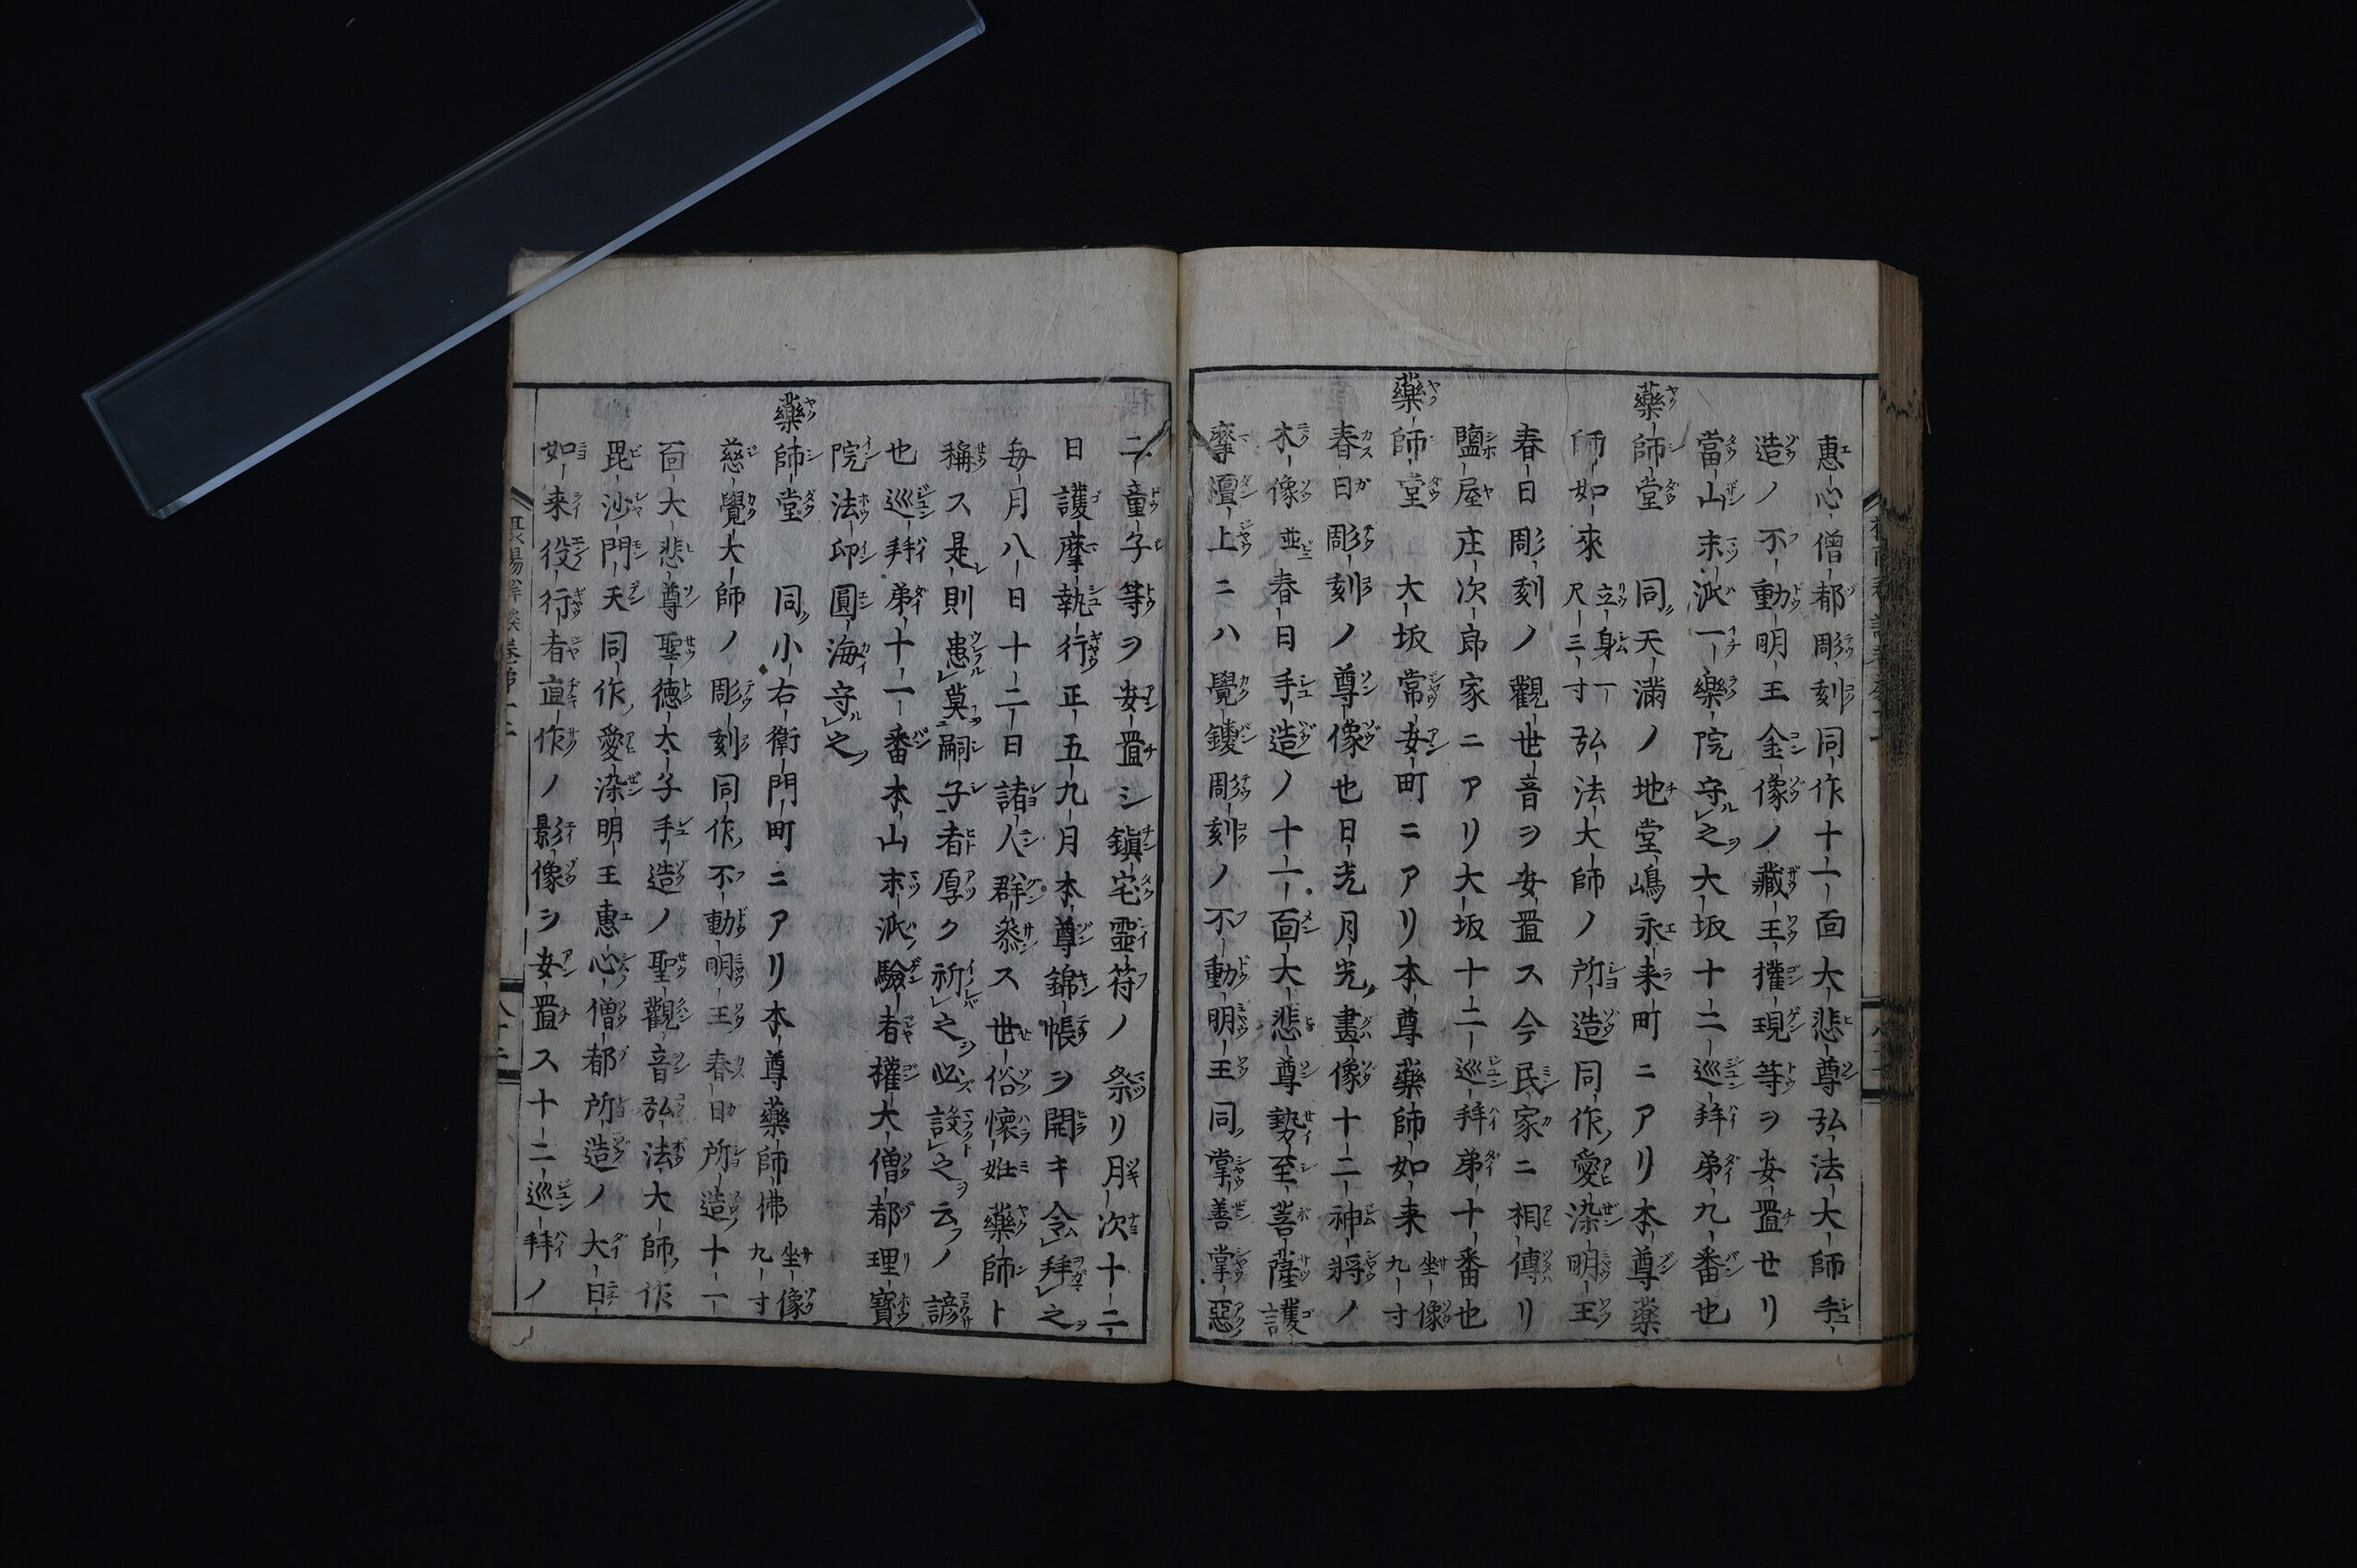 惠心僧都彫刻同作十一面大悲尊弘法大師手
造ノ不動明王金像ノ藏王權現等ヲ安置セリ
當山末派一樂院守ル之ヲ大坂十二巡拜第九番也
藥師堂 同天滿ノ地堂嶋永来町ニアリ本尊藥
師如來 立身一尺三寸 弘法大師ノ所造同作愛染明王
春日彫刻ノ觀世音ヲ安置ス今民家ニ相傳リ
鹽屋庄次郎家ニアリ大坂十二巡拜第十番也
藥師堂 大坂常安町ニアリ本尊藥師如来 坐像九寸
春日彫刻ノ尊像也日光月光畫像十二神將ノ
木像並春日手造ノ十一面大悲尊勢至菩薩護
摩壇上ニハ覺鑁彫刻ノ不動明王同掌善掌惡
二童子等ヲ安置シ鎭宅靈符ノ祭リ月次十二
日護摩執行正五九月本尊錦帳ヲ開キ令拜之ヲ
毎月八日十二日諸人群叅ス世俗懷姙藥師ト
稱ス是則患莫嗣子者厚ク祈之ヲ必設之ヲ云フノ諺
也巡拜第十一番本山末派驗者權大僧都理寶
院法印圓海守ル之ヲ
藥師堂 同小右衛門町ニアリ本尊藥師佛 坐像九寸
慈覺大師ノ彫刻同作不動明王春日所造十一
面大悲尊聖徳太子手造ノ聖觀音弘法大師作
毘沙門天同作愛染明王惠心僧都所造ノ大日
如来役行者直作ノ影像ヲ安置ス十二巡拜ノ